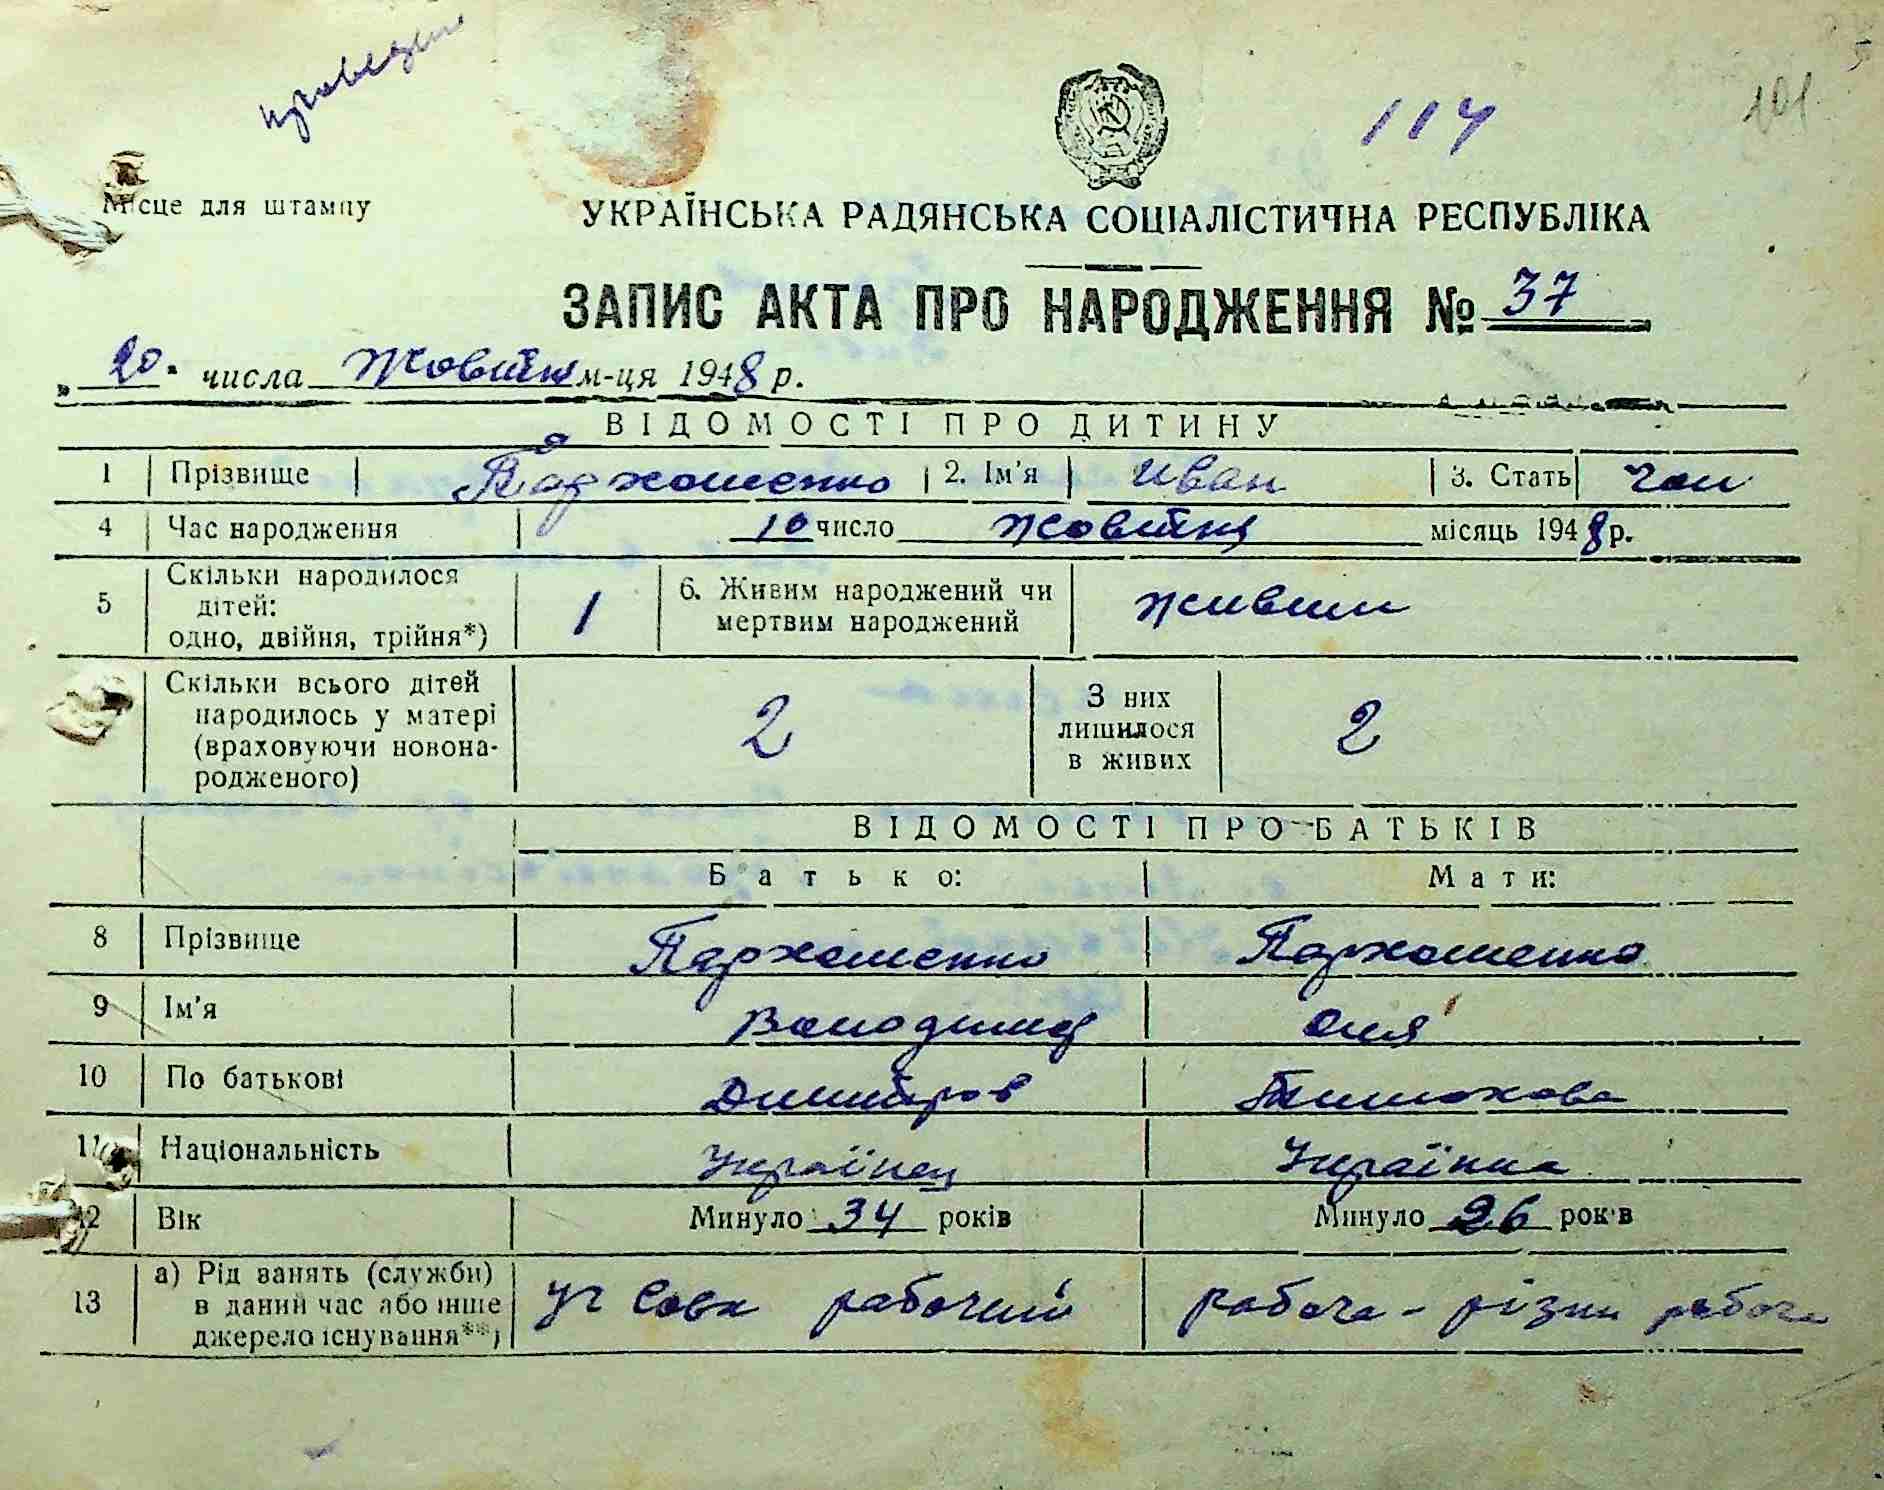 проведен
117
101
Місце для штампу
УКРАЇНСЬКА РАДЯНСЬКА СОЦІАЛІСТИЧНА РЕСПУБЛІКА
ЗАПИС АКТА ПРО НАРОДЖЕННЯ № 37
„20" числа Жовтня м-ця 1948 р.
ВІДОМОСТІ ПРО ДИТИНУ
1 Прізвище Пархоменко 2. Ім'я Иван 3. Стать Чол
4 Час народження 10 число жовтня місяць 1948 р.
5 Скільки народилося дітей: одно, двійня, трійня*) 1 6. Живим народжений чи мертвим народжений живим
Скільки всього дітей народилось у матері (враховуючи новонародженого) 2 З них лишилося в живих 2
ВІДОМОСТІ ПРО БАТЬКІВ
Батько: Мати:
8 Прізвище Пархоменко Пархоменко
9 Ім'я Володимер Оля
10 По батькові Димитров Тимохова
11 Національність Українец Українка
12 Вік Минуло 34 років Минуло 26 років
13 а) Рід занять (служби) в даний час або інше джерело існування**) рабочий рабоча - різни работи